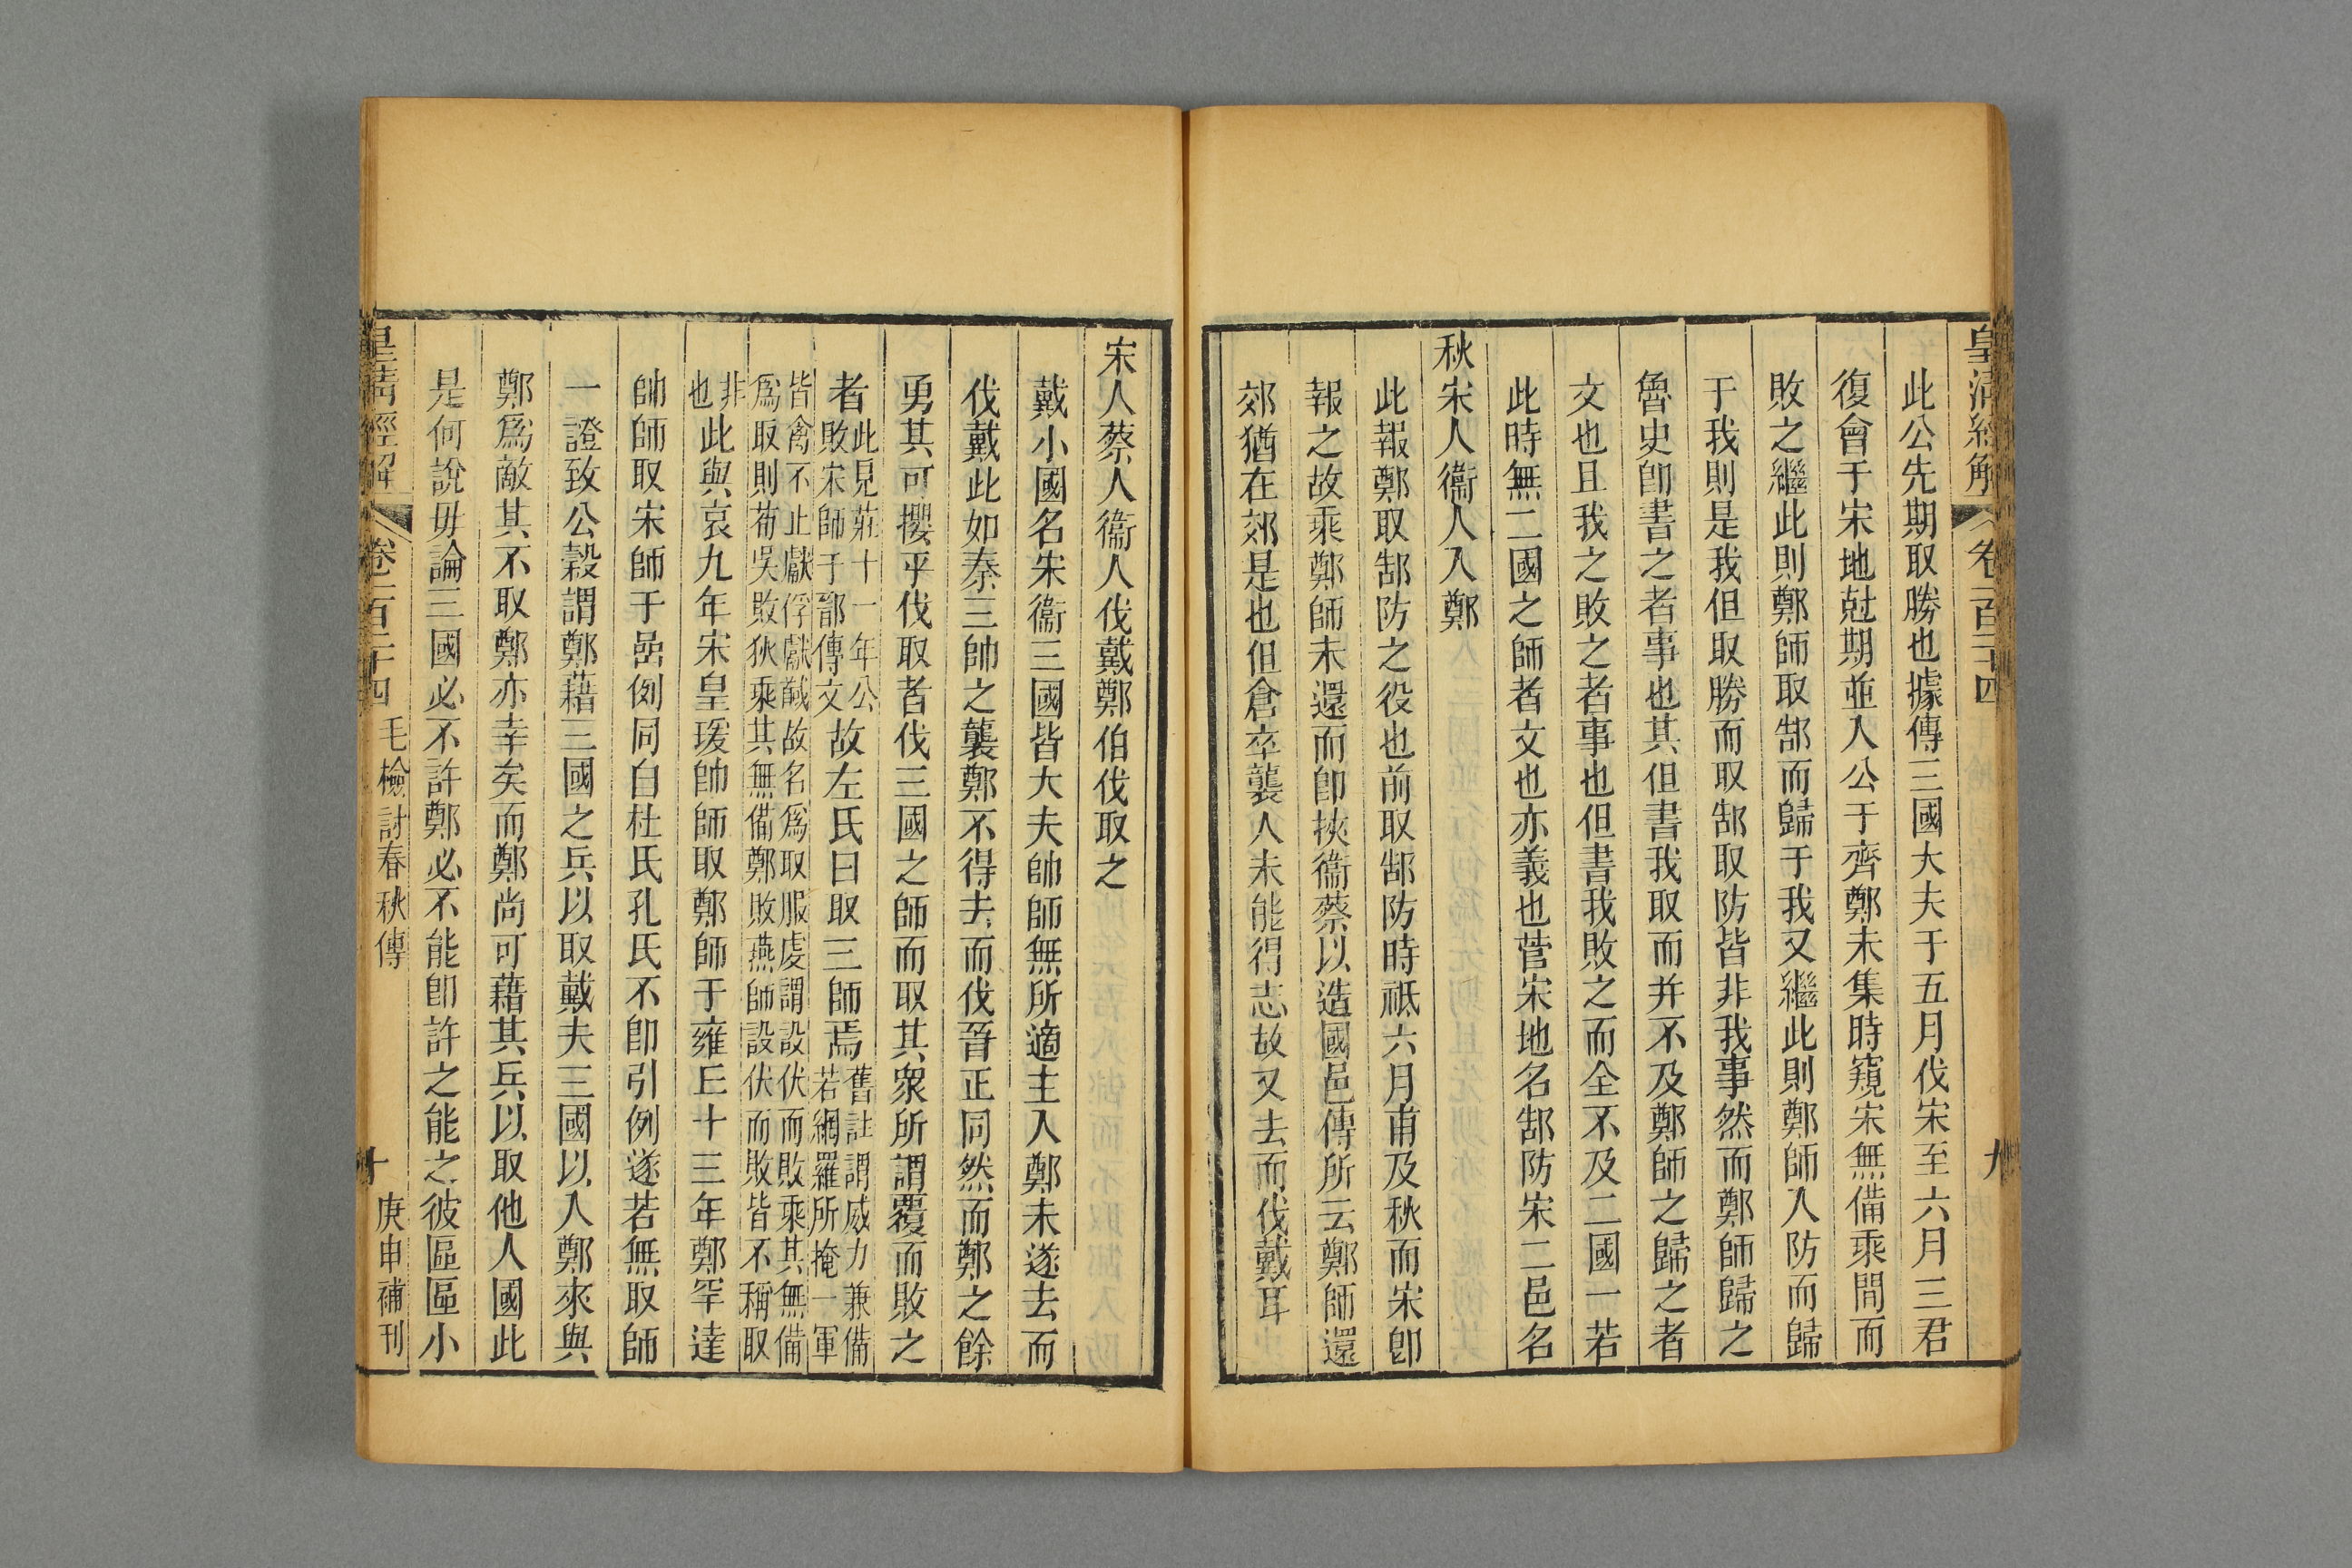 皇清經解 卷一百二十四 九
此公先期取勝也據傳三國大夫于五月伐宋至六月三君
復會于宋地尅期並入公于齊鄭未集時窺宋無備乘間而
敗之繼此則鄭師取郜而歸于我又繼此則鄭師入防而歸
于我則是我但取勝而取郜取防皆非我事然而鄭師歸之
魯史卽書之者事也其但書我取而并不及鄭師之歸之者
文也且我之敗之者事也但書我敗之而全不及二國一若
此時無二國之師者文也亦義也菅宋地名郜防宋二邑名
秋宋人衞人入鄭
此報鄭取郜防之役也前取郜防時祗六月甫及秋而宋卽
報之故乘鄭師未還而卽挾衞蔡以造國邑傳所云鄭師還
郊猶在郊是也但倉卒襲人未能得志故又去而伐戴耳
宋人蔡人衞人伐戴鄭伯伐取之
戴小國名朱衞三國皆大夫帥師無所適主入鄭未遂去而
伐戴此如秦三帥之襲鄭不得去而伐晉正同然而鄭之餘
勇其可攖乎伐取者伐三國之師而取其衆所謂覆而敗之
者此見莊十一年公敗宋師于鄑傳文故左氏曰取三師焉舊註謂威力兼備若網羅所掩一軍
皆禽不止獻俘獻馘故名爲取服虔謂設伏而敗乘其無備爲取則荀吳敗狄乘其無備鄭敗燕師設伏而敗皆不稱取
非也此與哀九年宋皇瑗帥師取鄭師于雍丘十三年鄭罕達
帥師取宋師于嵒例同自杜氏孔氏不卽引例遂若無取師
一證致公穀謂鄭藉三國之兵以取戴夫三國以入鄭來與
鄭爲敵其不取鄭亦幸矣而鄭尚可藉其兵以取他人國此
是何說毋論三國必不許鄭必不能卽許之能之彼區區小
皇清經解 卷一百二十四 毛檢討春秋傳 十 庚申補刊